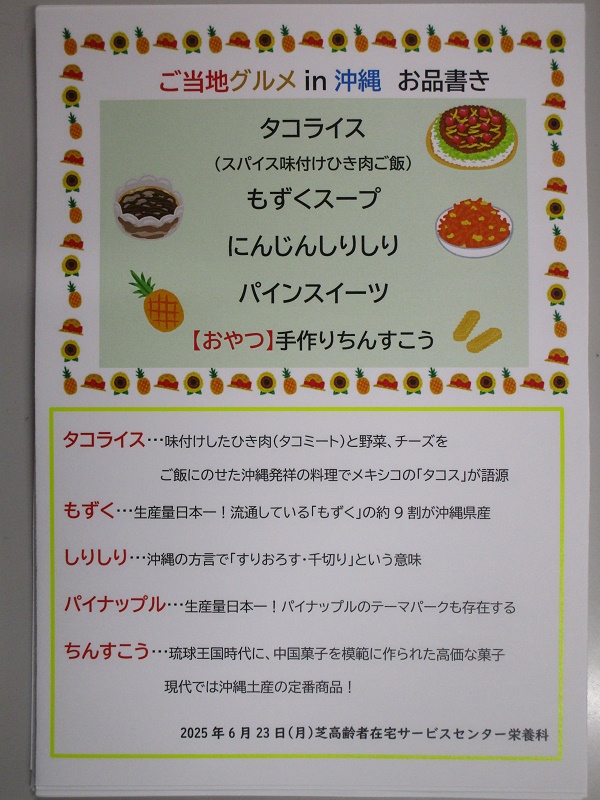 ご当地グルメ in 沖縄 お品書き
タコライス
（スパイス味付けひき肉ご飯）
もずくスープ
にんじんしりしり
パインスイーツ
【おやつ】手作りちんすこう
タコライス…味付けしたひき肉（タコミート）と野菜、チーズを
ご飯にのせた沖縄発祥の料理でメキシコの「タコス」が語源
もずく…生産量日本一！流通している「もずく」の約９割が沖縄県産
しりしり…沖縄の方言で「すりおろす・千切り」という意味
パイナップル…生産量日本一！パイナップルのテーマパークも存在する
ちんすこう…琉球王国時代に、中国菓子を模範に作られた高価な菓子
現代では沖縄土産の定番商品！
2025年6月23日(月)芝高齢者在宅サービスセンター栄養科